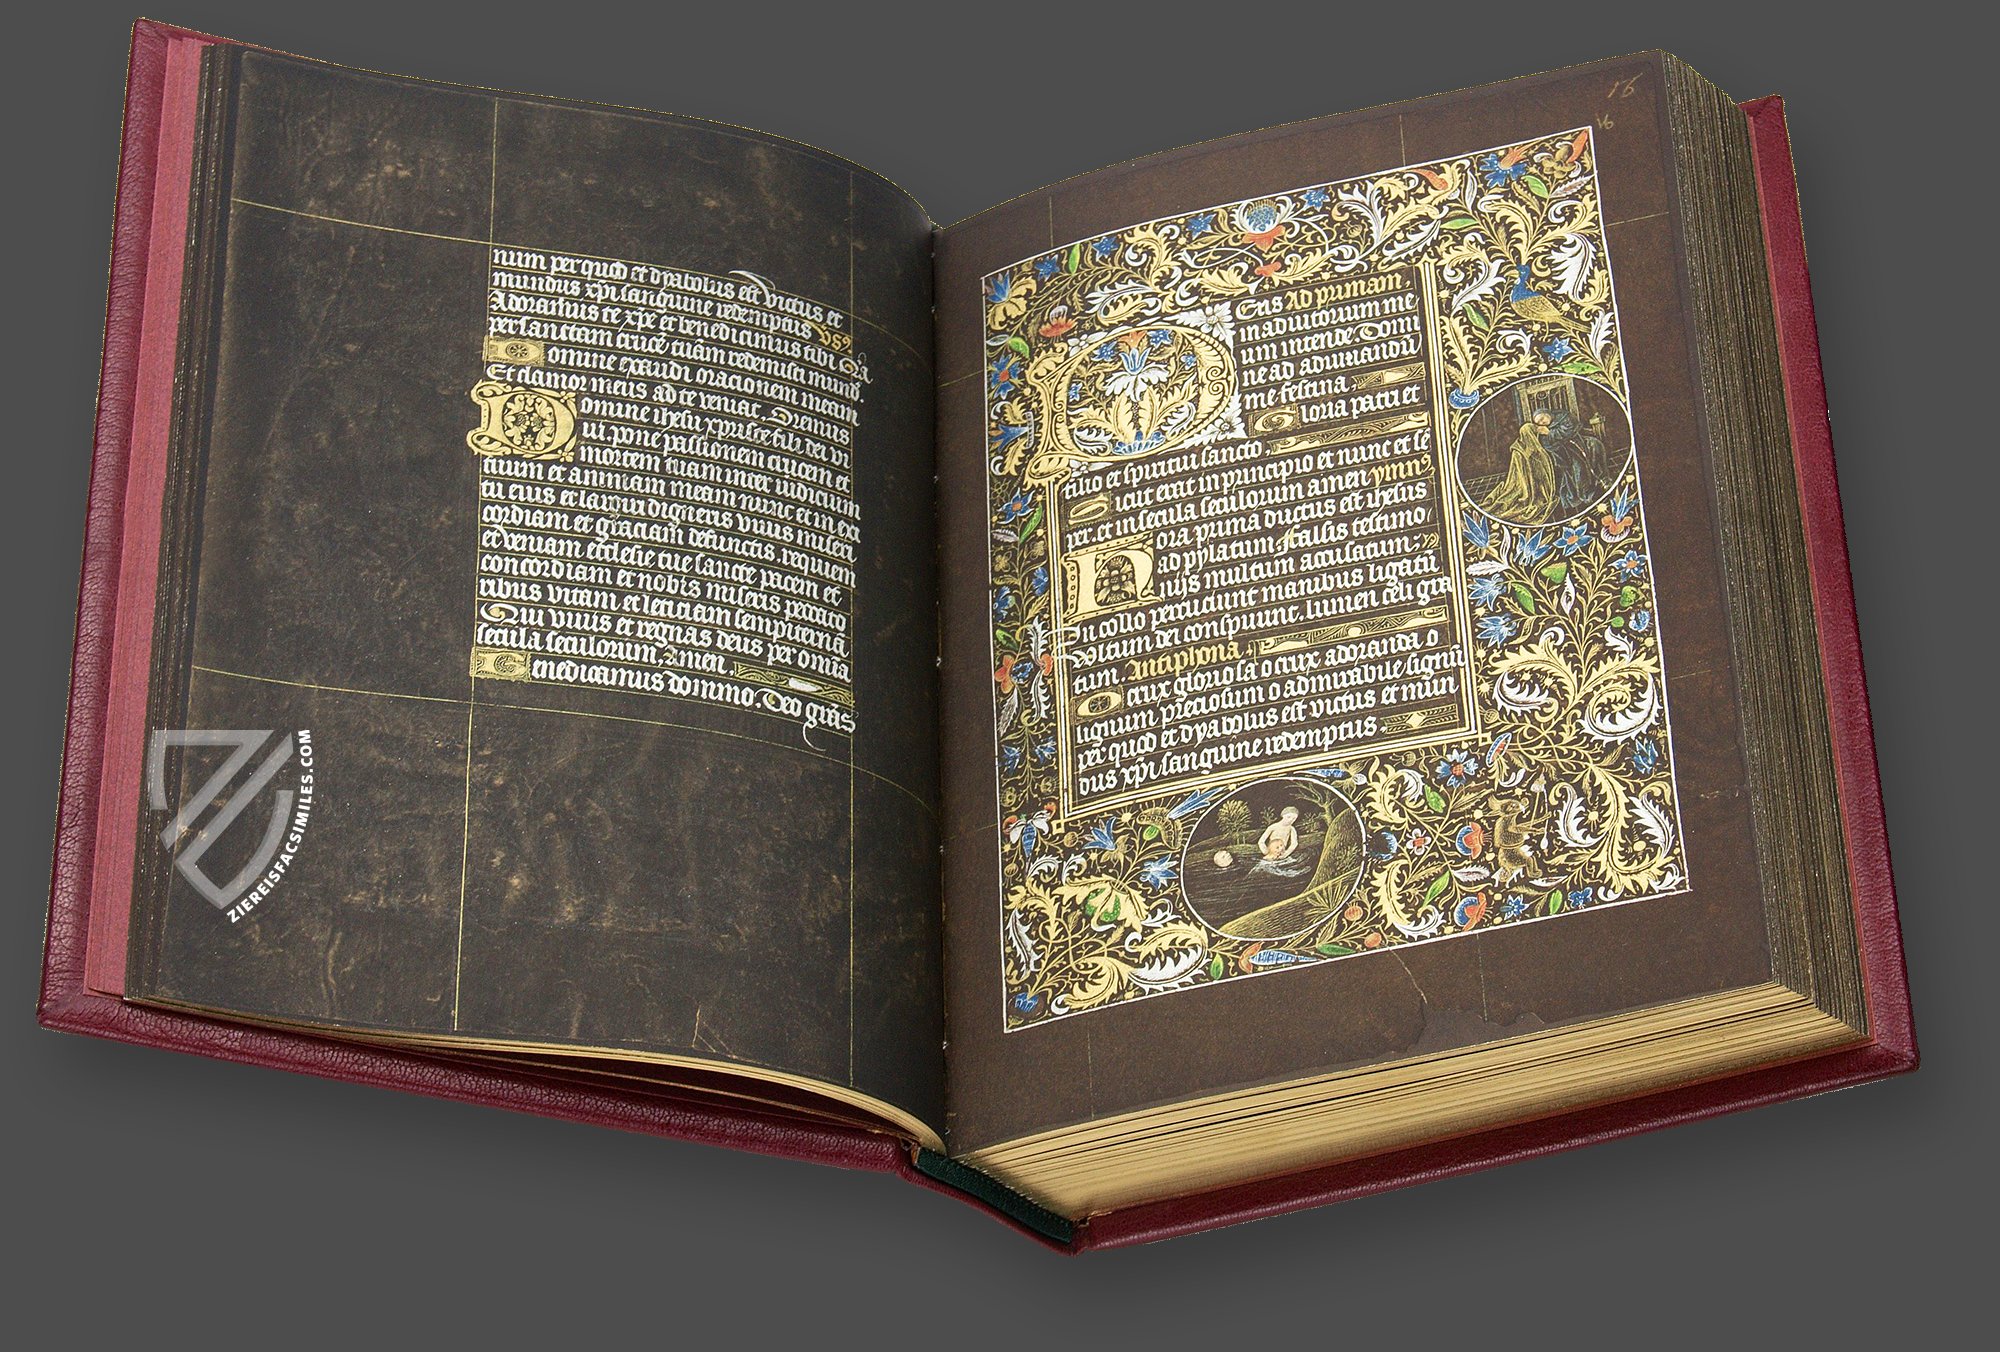 num per quod et dyabolus est victus et
mundus xpi sanguine redemptus
Adoramus te xpe et benedicimus tibi
per sanctam crucē tuam redemisti mund. vs9
Domine exaudi oracionem meam
Et clamor meus ad te veniat. Oremus Orā
Domine ihesu xpriste fili dei vi
ui. pone passionem crucem et
mortem tuam inter iudicium
tuum et animam meam nunc et in ex
tu eius et largiri digneris viuis miseri
cordiam et graciam defunctis. requiem
et veniam ecclesie tue sancte pacem et
concordiam et nobis miseris peccato
ribus vitam et leticiam sempiternā
Qui viuis et regnas deus per omīa
secula seculorum, Amen.
Benedicamus domino. Deo grās
ZIEREISFACSIMILES.COM
16
16
Deus Ad primam
in adiutorium me
um intende. Domi
ne ad adiuuandū
me festina.
Gloria patri et
filio et spiritui sancto,
Sicut erat in principio et nunc et se
per. et in secula seculorum amen ymn9
Hora prima ductus est ihesus
ad pylatum. falsis testimo
niis multum accusatum:
In collo percuciunt manibus ligatū
vultum dei conspuunt. lumen celi gra
tum. Antiphona.
O crux gloriosa o crux adoranda. o
lignum preciosum o admirabile signū
per quod et dyabolus est victus et mun
dus xpi sanguine redemptus.